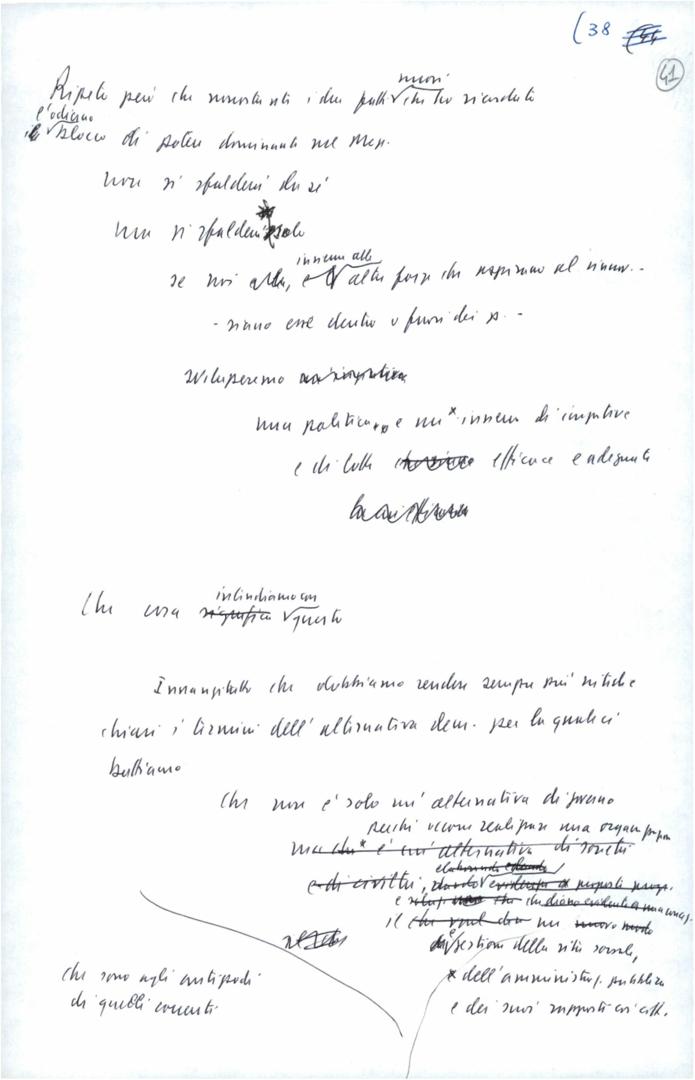 (38
41
Ripeto però che nonostante i due fatti nuovi che ho ricordato
l'odierno
il blocco di potere dominante nel Mezz.
non si sfalderà da sé
non si sfalderà solo
se noi e insieme alle altre forze che aspirano al rinnov. -
- siano esse dentro o fuori dei p. -
svilupperemo
una politica e un insieme di iniziative
e di lotte efficace e adeguate
Che cosa significa intendiamo con questo
Innanzitutto che dobbiamo rendere sempre più nitidi e
chiari i termini dell'alternativa dem. per la quale ci
battiamo
Che non è solo un'alternativa di governo
perché occorre realizzare una
ma che è un'alternativa di società
e di civiltà, elaborando proposte
e che diano evidenza a una
il che vuol dire un nuovo modo
di gestione della vita sociale,
che sono agli antipodi
dell'amministraz. pubblica
di quelli correnti
e dei suoi rapporti coi citt.